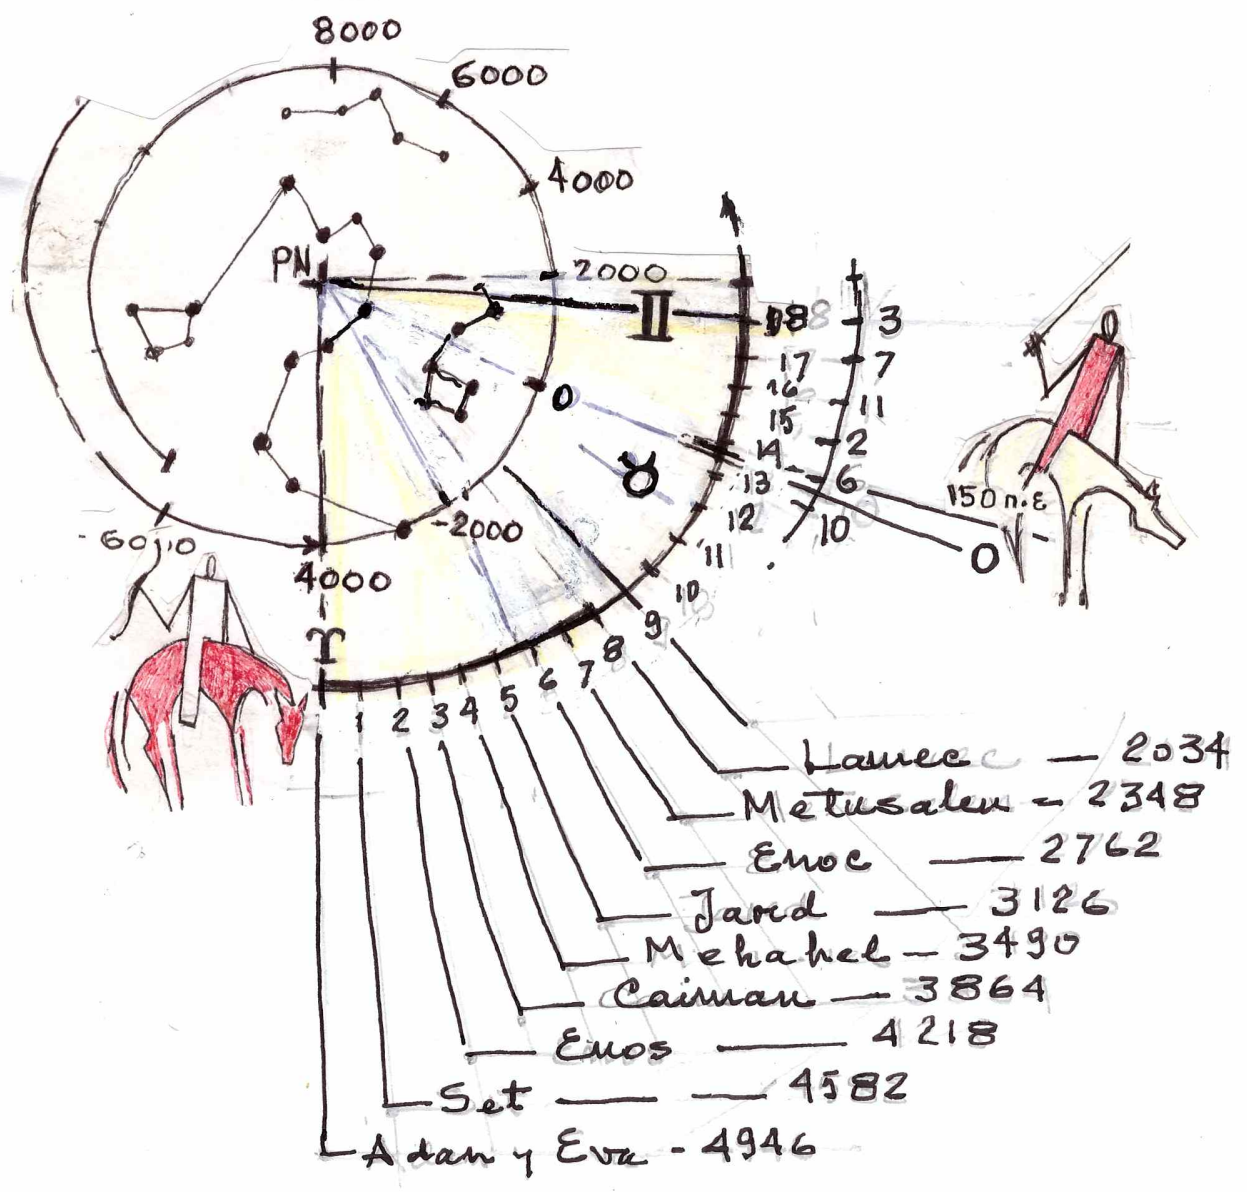 8000
6000
4000
PN
2000
II
18 3
17 7
16
15 11
14 2
13 6
12 10
11
10
0
♉
150 n.E
0
-2000
-6000
4000
♈
1 2 3 4 5 6 7 8 9
Lamec — 2034
Metusalen - 2348
Enoc — 2762
Jared — 3126
3490
Cainan — 3864
Enos — 4218
Set — 4582
Adan y Eva - 4946